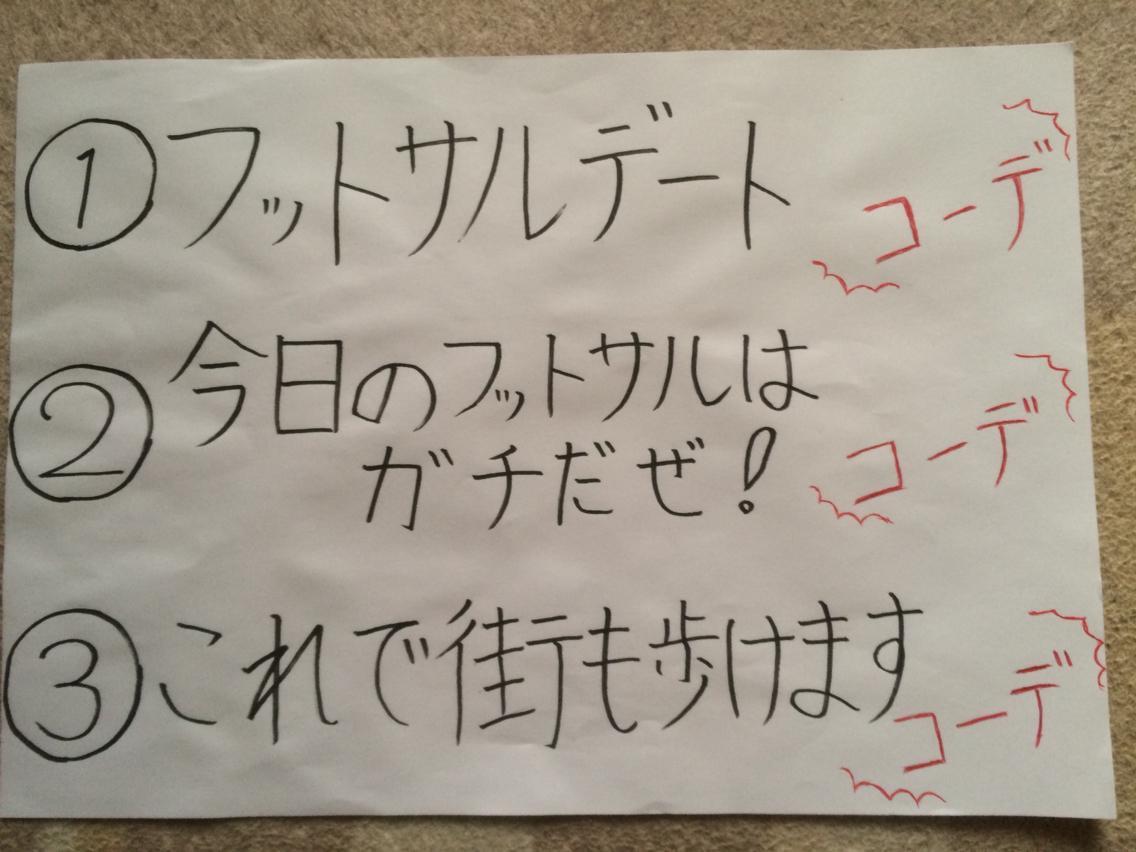 ①フットサルデート コーデ
②今日のフットサルは
ガチだぜ! コーデ
③これで街も歩けます コーデ